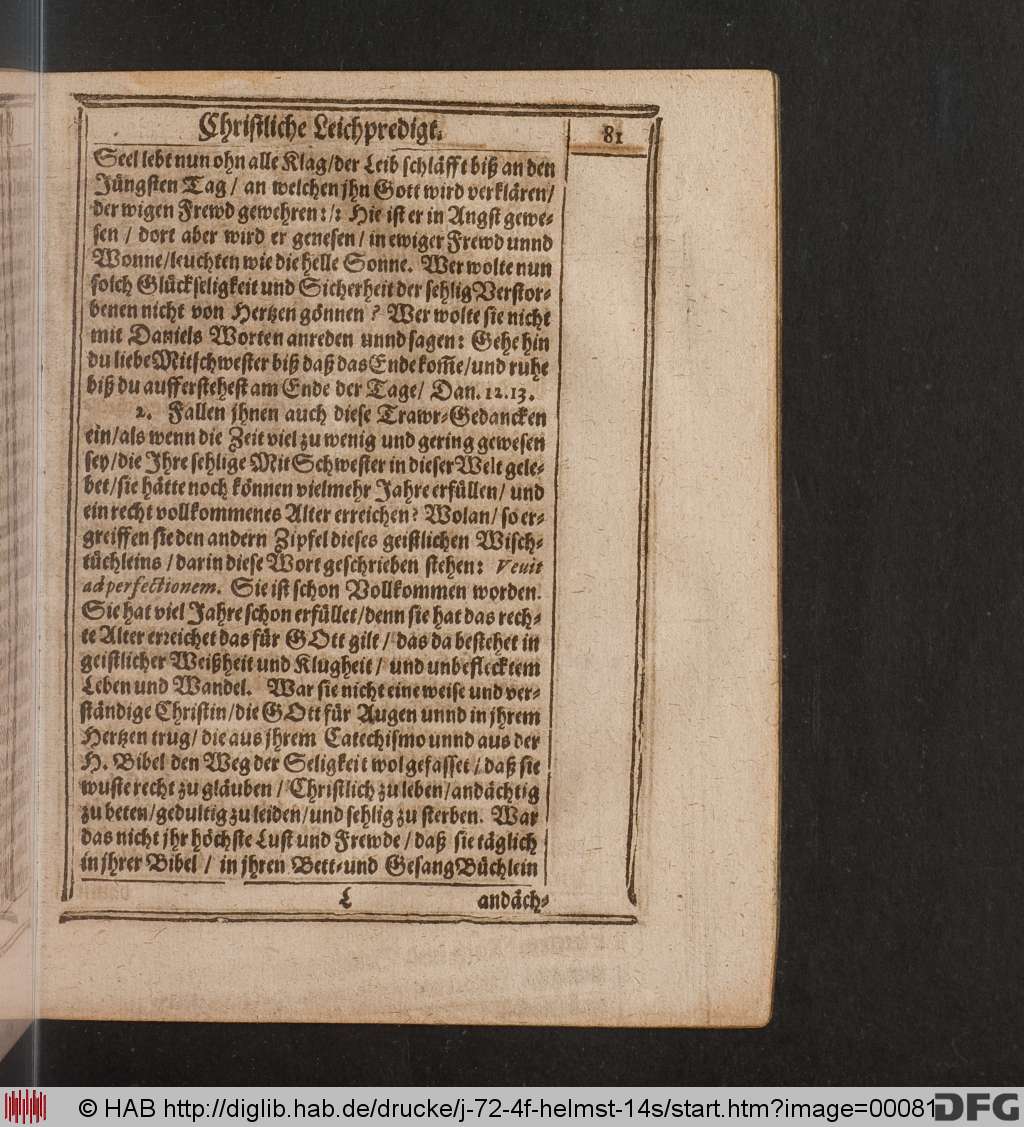 Christliche Leichpredigt. 81
Seel lebt nun ohn alle Klag/der Leib schläfft biß an den
Jüngsten Tag / an welchen jhn Gott wird verklären/
der wigen Frewd gewehren:/: Hie ist er in Angst gewe-
sen / dort aber wird er genesen / in ewiger Frewd unnd
Wonne/leuchten wie die helle Sonne. Wer wolte nun
solch Glückseligkeit und Sicherheit der sehlig Verstor-
benen nicht von Hertzen gönnen? Wer wolte sie nicht
mit Daniels Worten anreden unnd sagen: Gehe hin
du liebe Mitschwester biß daß das Ende kom̃e/und ruhe
biß du aufferstehest am Ende der Tage/ Dan. 12.13.
2. Fallen jhnen auch diese Trawr-Gedancken
ein/als wenn die Zeit viel zu wenig und gering gewesen
sey/die Ihre sehlige Mit Schwester in dieser Welt gele-
bet/sie hätte noch können vielmehr Jahre erfüllen/ und
ein recht vollkommenes Alter erreichen? Wolan/ so er-
greiffen sie den andern Zipfel dieses geistlichen Wisch-
tüchleins /darin diese Wort geschrieben stehen: Venit
ad perfectionem. Sie ist schon Vollkommen worden.
Sie hat viel Jahre schon erfüllet/denn sie hat das rech-
te Alter erreichet das für GOtt gilt / das da bestehet in
geistlicher Weißheit und Klugheit / und unbeflecktem
Leben und Wandel. War sie nicht eine weise und ver-
ständige Christin/die GOtt für Augen unnd in jhrem
Hertzen trug/ die aus jhrem Catechismo unnd aus der
H. Bibel den Weg der Seligkeit wol gefasset / daß sie
wuste recht zu gläuben / Christlich zu leben/andächtig
zu beten/gedultig zu leiden/und sehlig zu sterben. War
das nicht jhr höchste Lust und Frewde / daß sie täglich
in jhrer Bibel / in jhren Bett-und Gesang Büchlein
L andäch-
© HAB http://diglib.hab.de/drucke/j-72-4f-helmst-14s/start.htm?image=00081
DFG